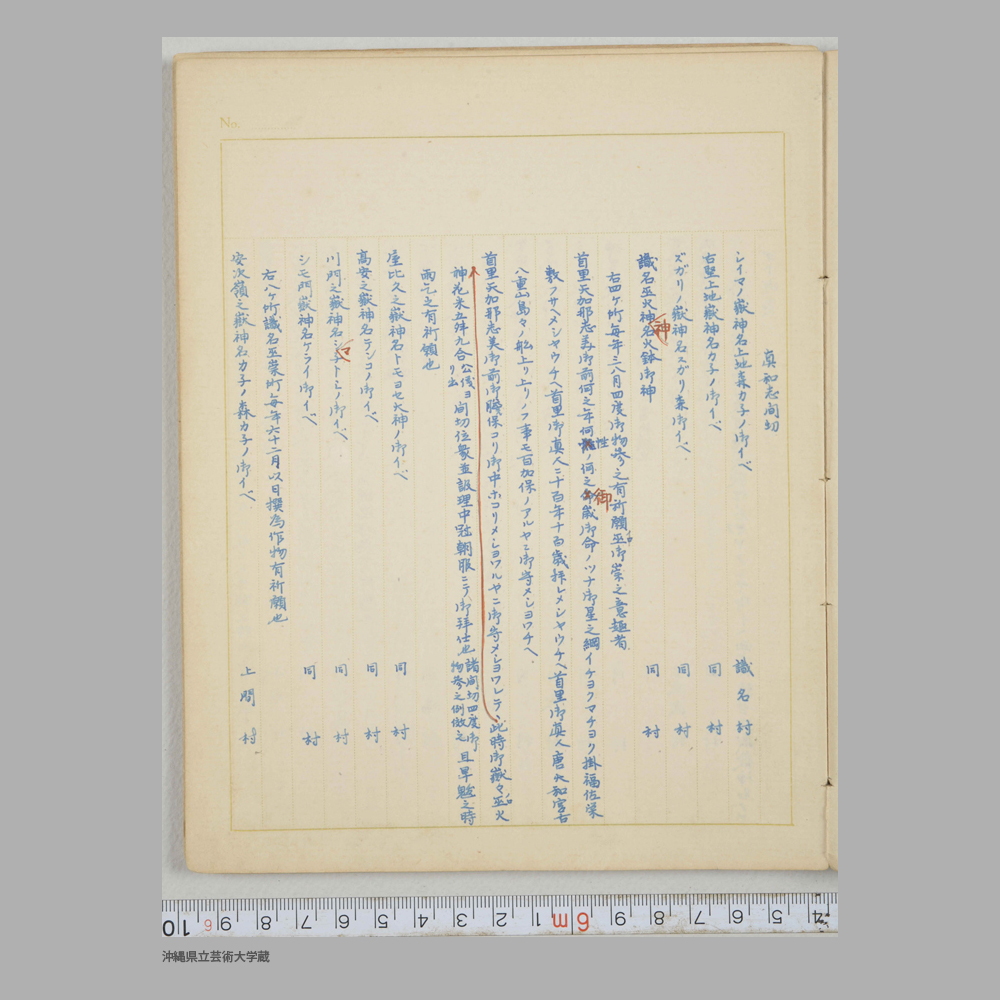 No.
真和志間切
シイマノ嶽神名上地森カ子ノ御イベ　識名村
右竪上地嶽神名カ子ノ御イベ　同村
ズガリノ嶽神名スガリ森御イベ　同村
識名巫火神名火鉢御神　同村
神
右四ヶ所毎年三八月四度御物参之有祈願巫御崇之意趣者
首里天加那志美御前何之年何性ノ何之御歳御命ノツナ御星之綱イチヨクマチヨク掛福佐栄
敷フサヘメシヤウチヘ首里御真人二十百年十百歳拝レメシヤウチヘ首里御真人唐大和宮古
八重山島々ノ船上リ上リノフ事モ百加保ノアルヤニ御守メシヨワチヘ、
首里天加那志美御前御膝保コリ御中ホコリメシヨワルヤニ御守メシヨワレテ、此時御嶽々巫火
神花米五舛九合公儀ヨリ出間切位衆並諸理中冠朝服ニテ御拝仕也諸間切四度御物参之例倣之且旱魃之時
雨乞之有祈願也
屋比久之嶽神名トモヨセ大神ノ御イベ　同村
高安之嶽神名テンコノ御イベ　同村
川門之嶽神名シマトミノ御イベ　同村
シモ門嶽神名ケライ御イベ　同村
右八ヶ所識名巫崇所毎年六十二月以日撰為作物有祈願也
安次嶺之嶽神名カ子ノ森カ子ノ御イベ　上間村
10 9 8 7 6 5 4 3 2 1 6m 9 8 7 6 5 4
沖縄県立芸術大学蔵